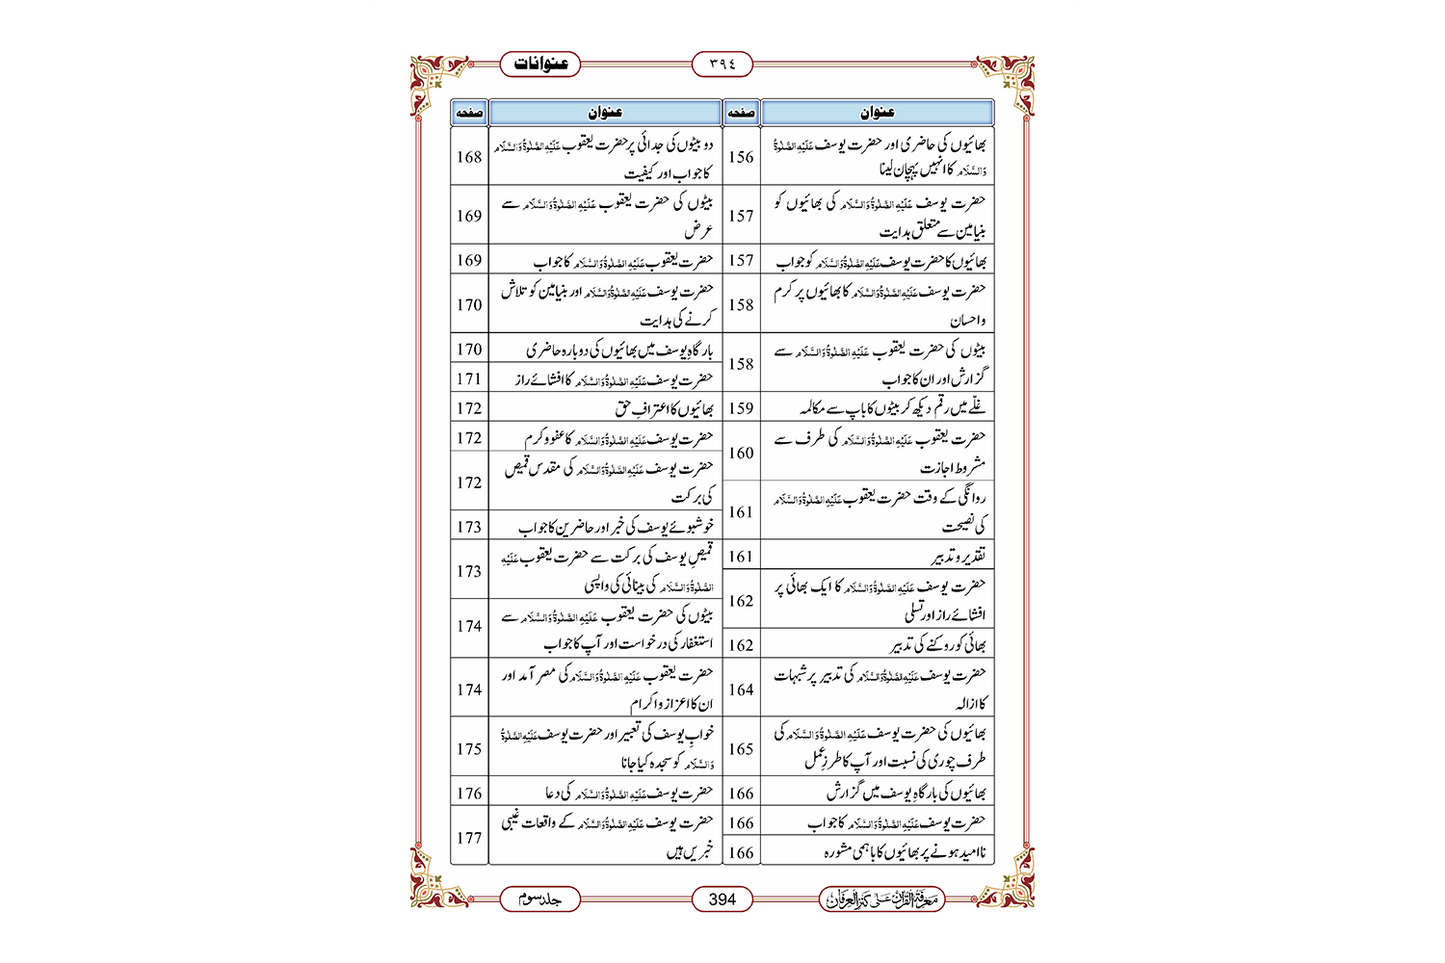 عنوانات
٣٩٤
عنوان
صفحہ
عنوان
صفحہ
بھائیوں کی حاضری اور حضرت یوسف عَلَیْہِ الصَّلٰوۃُ
وَالسَّلَام کا انہیں پہچان لینا
156
حضرت یوسف عَلَیْہِ الصَّلٰوۃُ وَالسَّلَام کی بھائیوں کو
بنیامین سے متعلق ہدایت
157
بھائیوں کا حضرت یوسف عَلَیْہِ الصَّلٰوۃُ وَالسَّلَام کو جواب
157
حضرت یوسف عَلَیْہِ الصَّلٰوۃُ وَالسَّلَام کا بھائیوں پر کرم
و احسان
158
بیٹوں کی حضرت یعقوب عَلَیْہِ الصَّلٰوۃُ وَالسَّلَام سے
گزارش اور ان کا جواب
158
غلّے میں رقم دیکھ کر بیٹوں کا باپ سے مکالمہ
159
حضرت یعقوب عَلَیْہِ الصَّلٰوۃُ وَالسَّلَام کی طرف سے
مشروط اجازت
160
روانگی کے وقت حضرت یعقوب عَلَیْہِ الصَّلٰوۃُ وَالسَّلَام
کی نصیحت
161
تقدیر و تدبیر
161
حضرت یوسف عَلَیْہِ الصَّلٰوۃُ وَالسَّلَام کا ایک بھائی پر
افشائے راز اور تسلی
162
بھائی کو روکنے کی تدبیر
162
حضرت یوسف عَلَیْہِ الصَّلٰوۃُ وَالسَّلَام کی تدبیر پر شبہات
کا ازالہ
164
بھائیوں کی حضرت یوسف عَلَیْہِ الصَّلٰوۃُ وَالسَّلَام کی
طرف چوری کی نسبت اور آپ کا طرزِ عمل
165
بھائیوں کی بارگاہِ یوسف میں گزارش
166
حضرت یوسف عَلَیْہِ الصَّلٰوۃُ وَالسَّلَام کا جواب
166
ناامید ہونے پر بھائیوں کا باہمی مشورہ
166
دو بیٹوں کی جدائی پر حضرت یعقوب عَلَیْہِ الصَّلٰوۃُ وَالسَّلَام
کا جواب اور کیفیت
168
بیٹوں کی حضرت یعقوب عَلَیْہِ الصَّلٰوۃُ وَالسَّلَام سے
عرض
169
حضرت یعقوب عَلَیْہِ الصَّلٰوۃُ وَالسَّلَام کا جواب
169
حضرت یوسف عَلَیْہِ الصَّلٰوۃُ وَالسَّلَام اور بنیامین کو تلاش
کرنے کی ہدایت
170
بارگاہِ یوسف میں بھائیوں کی دوبارہ حاضری
170
حضرت یوسف عَلَیْہِ الصَّلٰوۃُ وَالسَّلَام کا افشائے راز
171
بھائیوں کا اعترافِ حق
172
حضرت یوسف عَلَیْہِ الصَّلٰوۃُ وَالسَّلَام کا عفو و کرم
172
حضرت یوسف عَلَیْہِ الصَّلٰوۃُ وَالسَّلَام کی مقدس قمیص
کی برکت
172
خوشبوئے یوسف کی خبر اور حاضرین کا جواب
173
قمیصِ یوسف کی برکت سے حضرت یعقوب عَلَیْہِ
الصَّلٰوۃُ وَالسَّلَام کی بینائی کی واپسی
173
بیٹوں کی حضرت یعقوب عَلَیْہِ الصَّلٰوۃُ وَالسَّلَام سے
استغفار کی درخواست اور آپ کا جواب
174
حضرت یعقوب عَلَیْہِ الصَّلٰوۃُ وَالسَّلَام کی مصر آمد اور
ان کا اعزاز و اکرام
174
خوابِ یوسف کی تعبیر اور حضرت یوسف عَلَیْہِ الصَّلٰوۃُ
وَالسَّلَام کو سجدہ کیا جانا
175
حضرت یوسف عَلَیْہِ الصَّلٰوۃُ وَالسَّلَام کی دعا
176
حضرت یوسف عَلَیْہِ الصَّلٰوۃُ وَالسَّلَام کے واقعات غیبی
خبریں ہیں
177
معرفۃ القرآن علیٰ کنز العرفان
394
جلد سوم